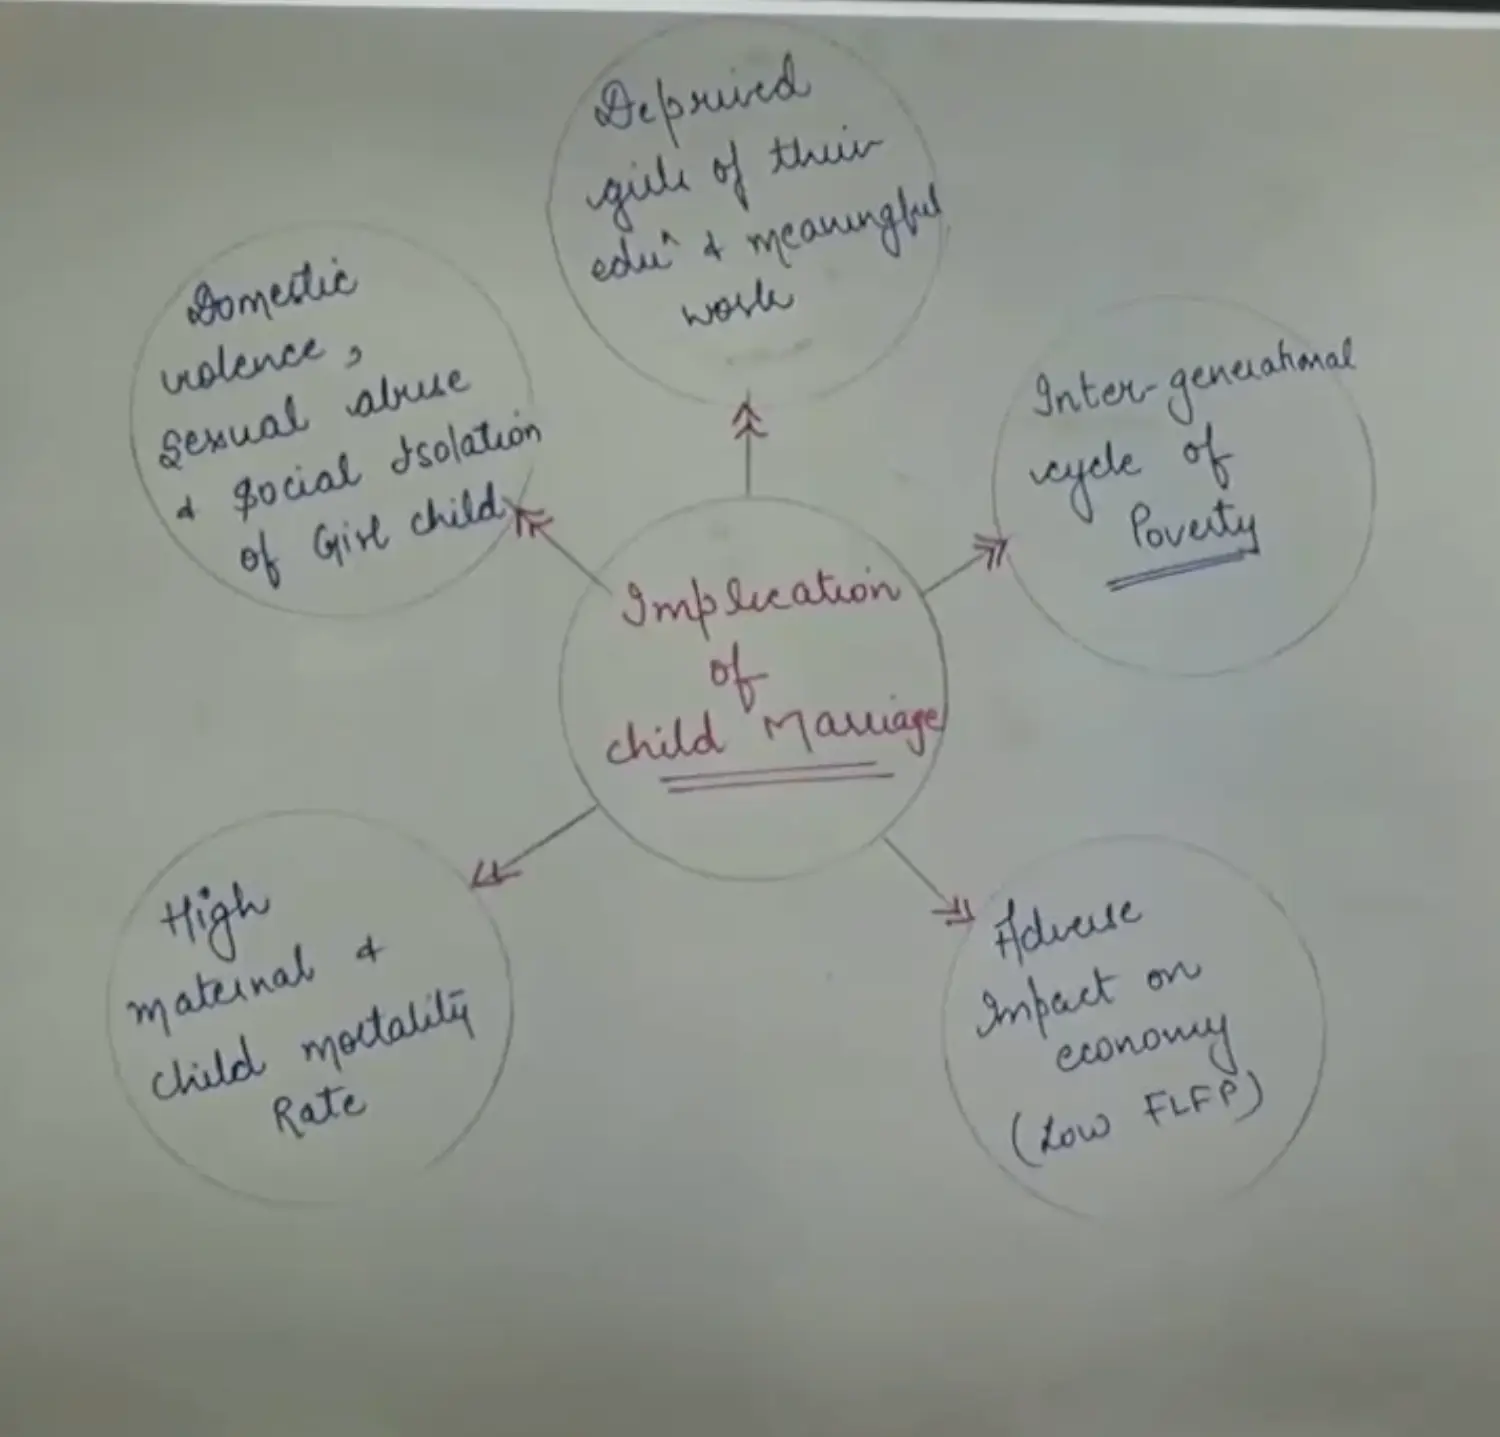 Deprived
girls of their
eduⁿ & meaningful
work
Domestic
violence,
sexual abuse
& Social Isolation
of Girl child
Inter-generational
cycle of
Poverty
Implication
of
child Marriage
High
maternal &
child mortality
Rate
Adverse
Impact on
economy
(Low FLFP)